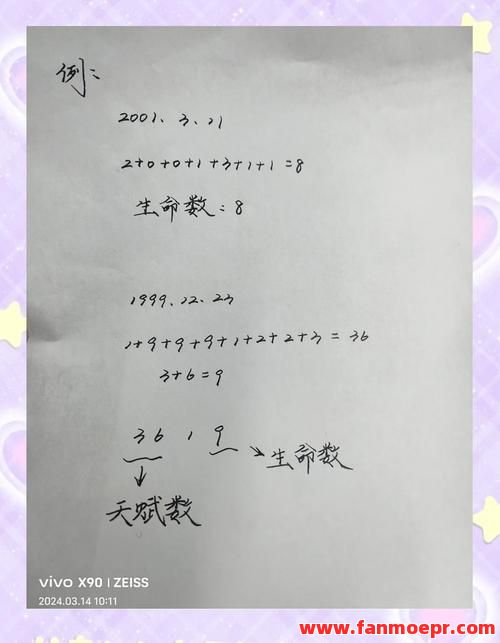 例:
2001. 3. 11
2+0+0+1+3+1+1=8
生命数:8
1999.12.23
1+9+9+9+1+2+2+3=36
3+6=9
36,9
生命数
天赋数
vivo X90 | ZEISS
2024.03.14 10:11
www.fanmoepr.com